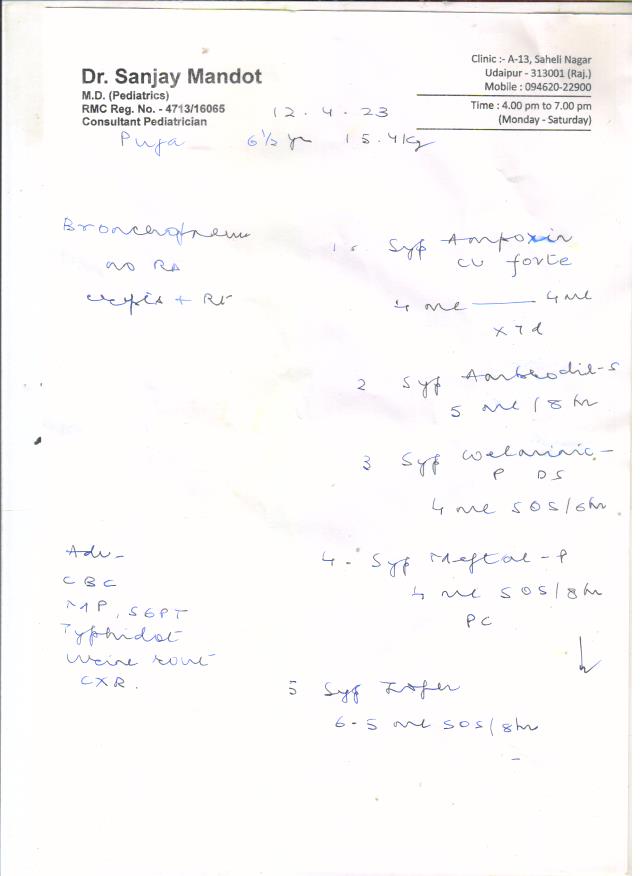 Dr. Sanjay Mandot
M.D. (Pediatrics)
RMC Reg. No. - 4713/16065
Consultant Pediatrician
Clinic :- A-13, Saheli Nagar
Udaipur - 313001 (Raj.)
Mobile : 094620-22900
Time : 4.00 pm to 7.00 pm
(Monday - Saturday)
12.4.23
Puja 6½ yr 15.4 kg
no RD
+ Rt
1. Syp Ampoxin
CV forte
4 ml — 4 ml
x 7 d
2 Syp Ambrodil-S
5 ml / 8 hr
3 Syp
P DS
4 ml SOS/6hr
4. Syp Meftal-P
4 ml SOS/8hr
PC
5 Syp
6.5 ml SOS/8hr
Adv-
CBC
MP, SGPT
Typhidot
Urine rout
CXR.